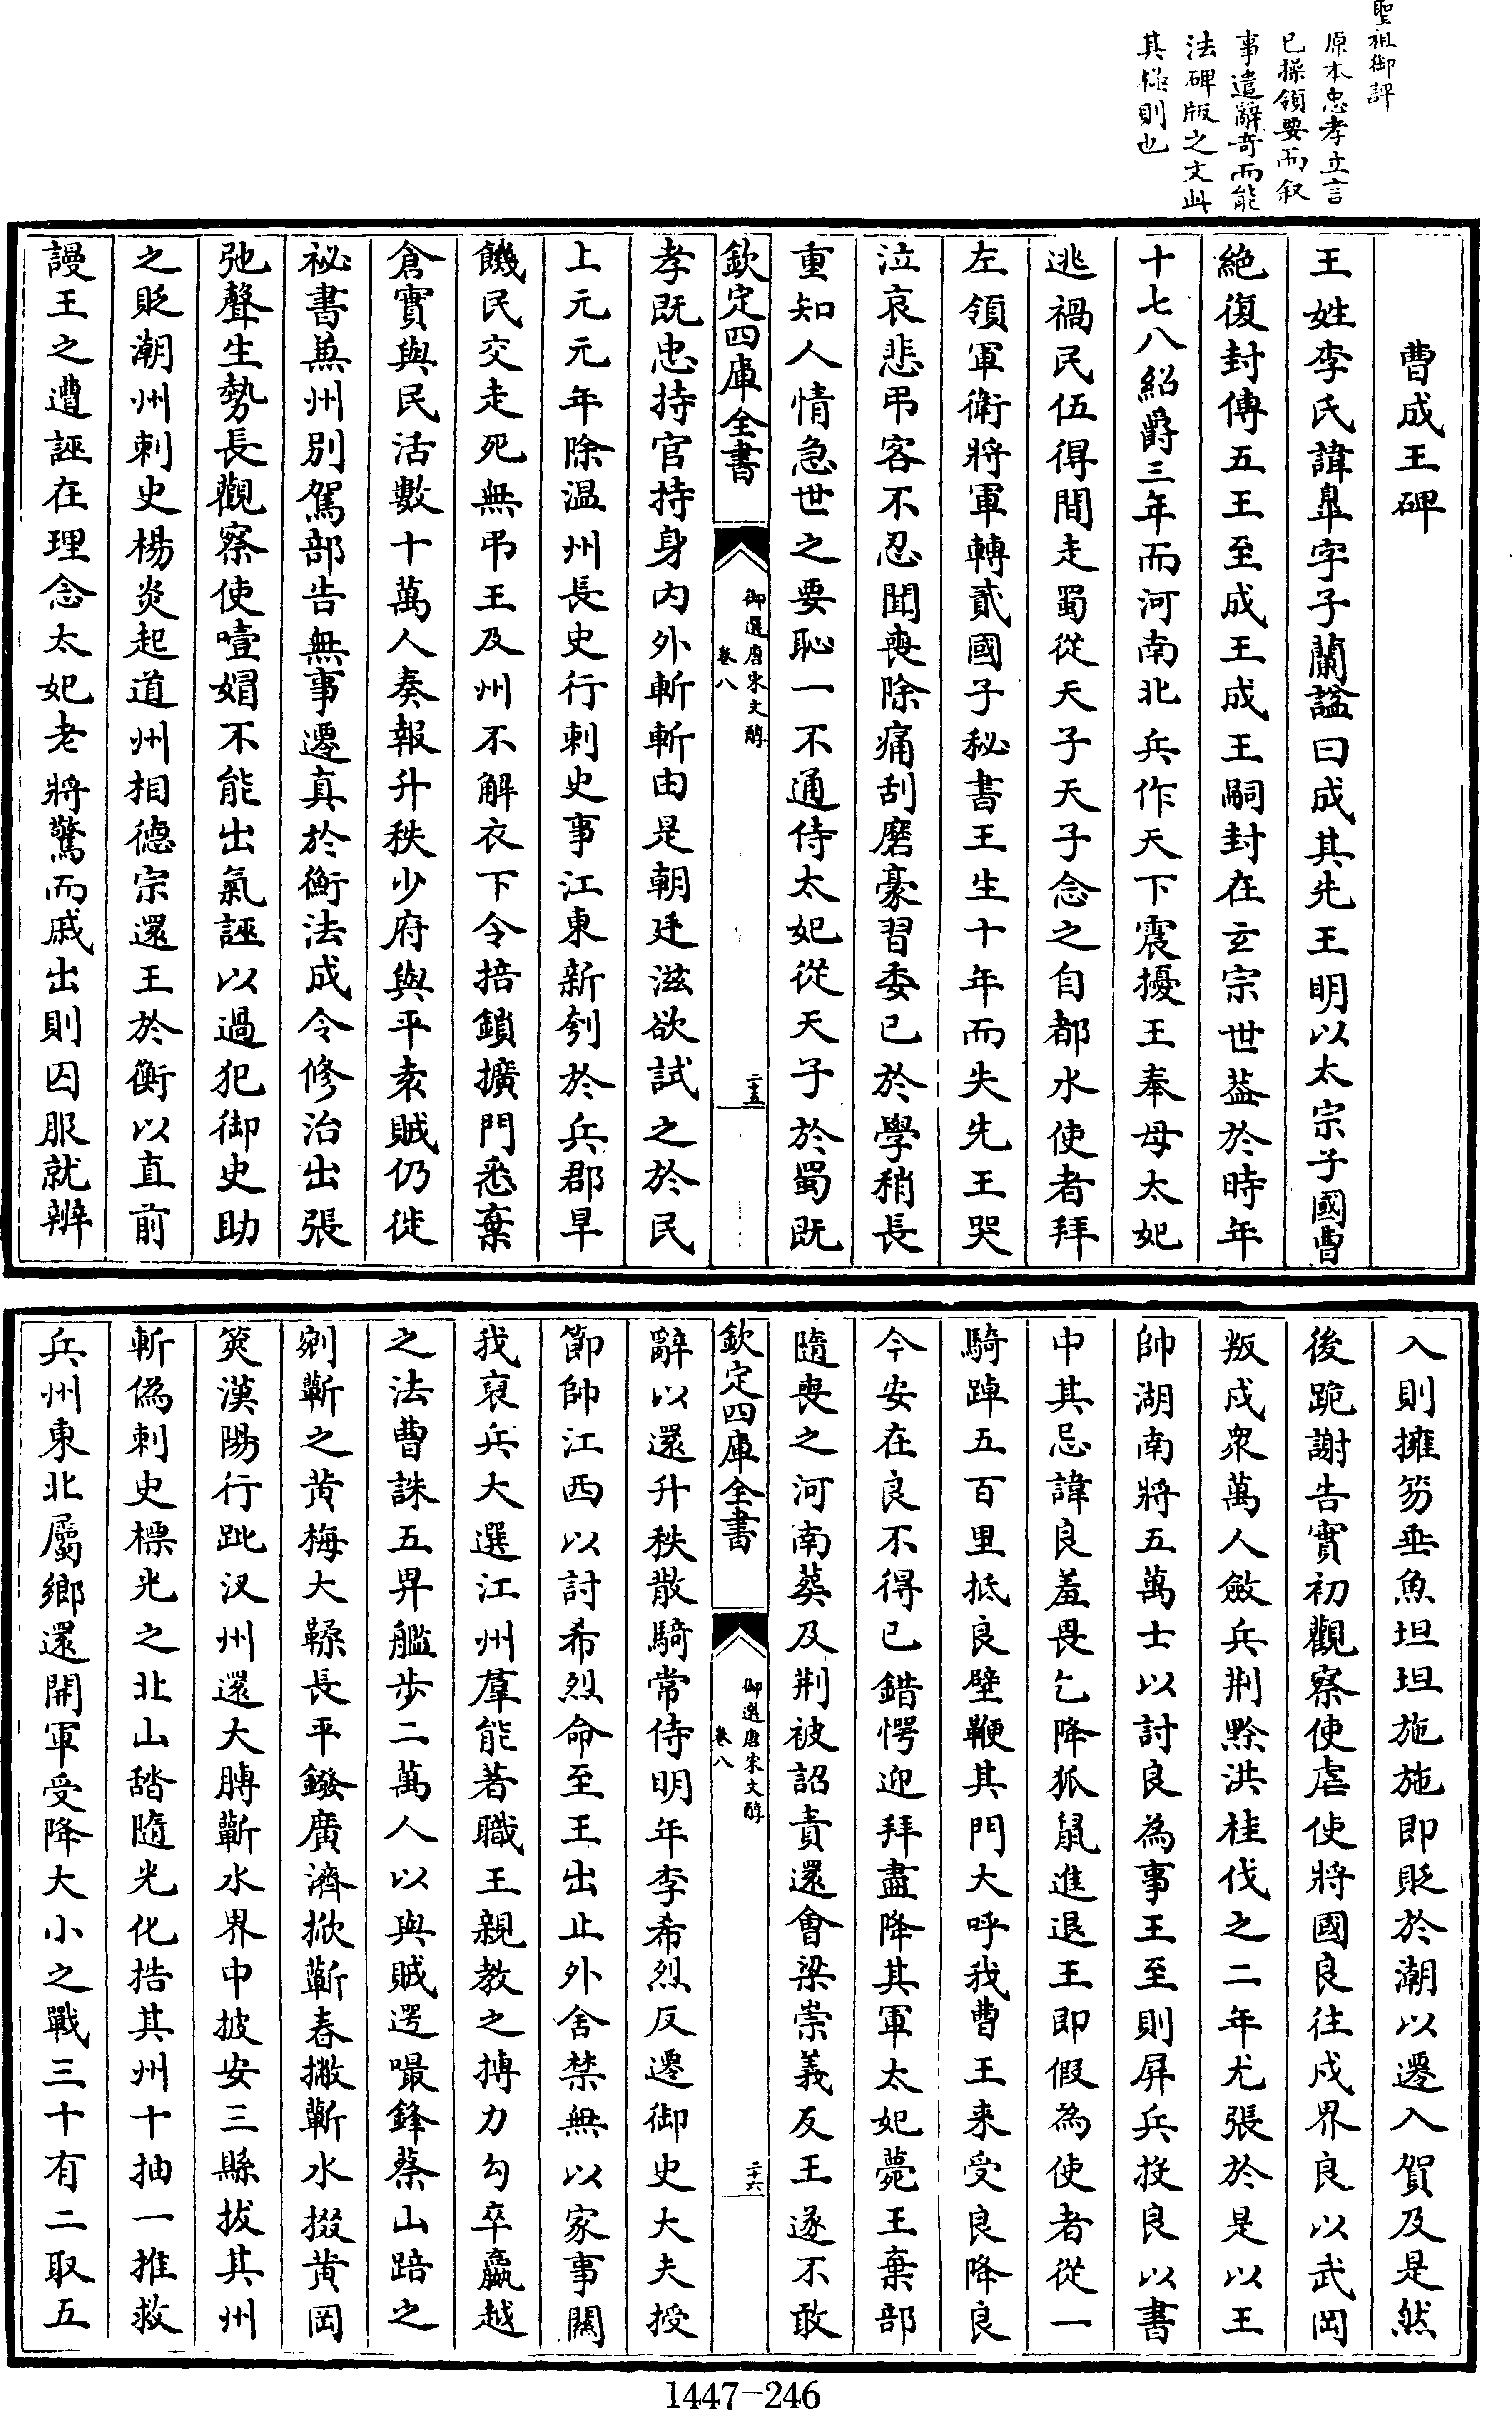 聖祖御評
原本忠孝立言
已操領要而叙
事遣辭奇而能
法碑版之文此
其極則也
曹成王碑
王姓李氏諱臯字子蘭諡曰成其先王明以太宗子國曹
絶復封傳五王至成王成王嗣封在玄宗世葢於時年
十七八紹爵三年而河南北兵作天下震擾王奉母太妃
逃禍民伍得間走蜀從天子天子念之自都水使者拜
左領軍衛將軍轉貳國子秘書王生十年而失先王哭
泣哀悲弔客不忍聞喪除痛刮磨豪習委已於學稍長
重知人情急世之要恥一不通侍太妃從天子於蜀既
欽定四庫全書
御選唐宋文醇
卷八
二十五
孝既忠持官持身内外斬斬由是朝廷滋欲試之於民
上元元年除温州長史行刺史事江東新刳於兵郡旱
饑民交走死無弔王及州不解衣下令掊鎖擴門悉棄
倉實與民活數十萬人奏報升秩少府與平袁賊仍徙
祕書兼州别駕部告無事遷真於衡法成令修治出張
弛聲生勢長觀察使噎媢不能出氣誣以過犯御史助
之貶潮州刺史楊炎起道州相德宗還王於衡以直前
謾王之遭誣在理念太妃老將驚而戚出則囚服就辨
入則擁笏垂魚坦坦施施即貶於潮以遷入賀及是然
後跪謝告實初觀察使虐使將國良往戍界良以武岡
叛戍衆萬人斂兵荆黔洪桂伐之二年尤張於是以王
帥湖南將五萬士以討良為事王至則屏兵投良以書
中其忌諱良羞畏乞降狐鼠進退王即假為使者從一
騎踔五百里抵良壁鞭其門大呼我曹王来受良降良
今安在良不得已錯愕迎拜盡降其軍太妃薨王棄部
隨喪之河南葬及荆被詔責還會梁崇義反王遂不敢
欽定四庫全書
御選唐宋文醇
卷八
二十六
辭以還升秩散騎常侍明年李希烈反遷御史大夫授
節帥江西以討希烈命至王出止外舍禁無以家事關
我裒兵大選江州羣能著職王親教之摶力勾卒嬴越
之法曹誅五畀艦步二萬人以與賊遌嘬鋒蔡山踣之
剜蘄之黄梅大鞣長平鏺廣濟掀蘄春撇蘄水掇黄岡
筴漢陽行跐汊川還大膊蘄水界中披安三縣拔其州
斬偽刺史標光之北山䃚隨光化捁其州十抽一推救
兵州東北屬鄉還開軍受降大小之戰三十有二取五
1447-246